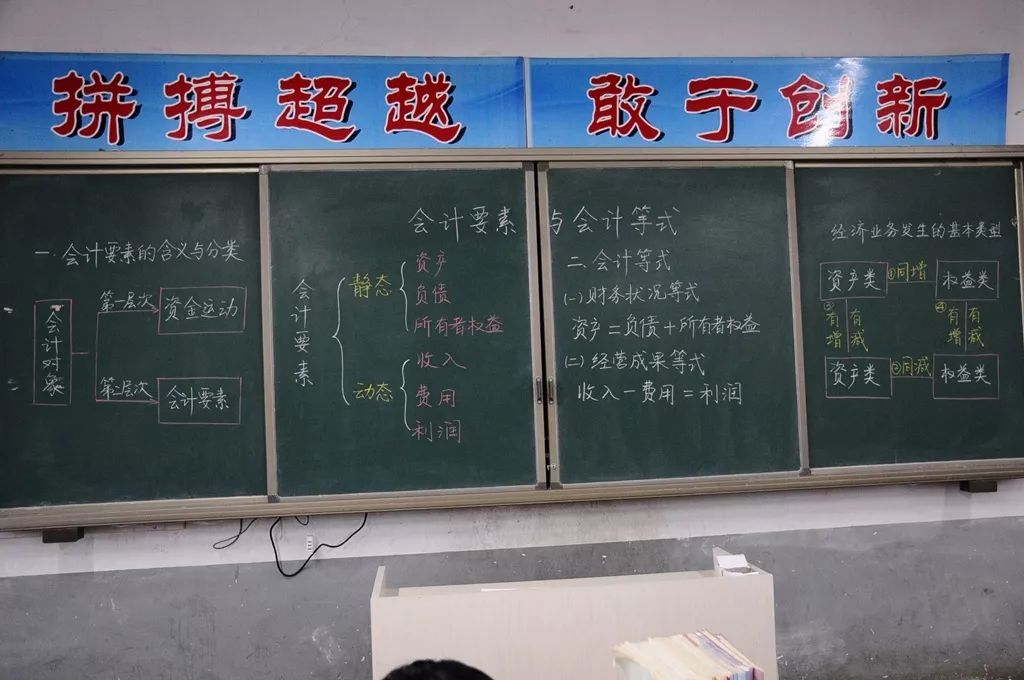 拼搏超越 敢于创新
会计要素与会计等式
一.会计要素的含义与分类
会计对象
第一层次
资金运动
第二层次
会计要素
会计要素
静态
资产
负债
所有者权益
动态
收入
费用
利润
二.会计等式
(一)财务状况等式
资产=负债+所有者权益
(二)经营成果等式
收入-费用=利润
经济业务发生的基本类型
资产类 ①同增 权益类
③有增 有减
④有增 有减
资产类 ②同减 权益类